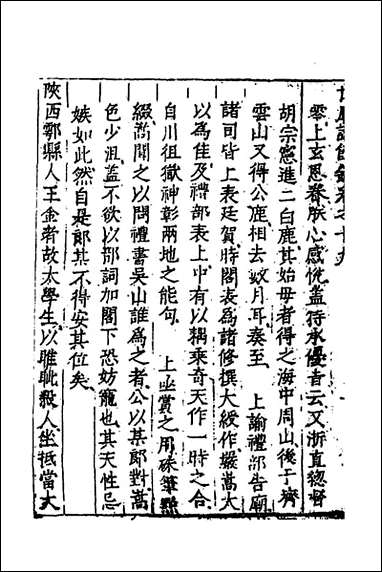 世廟識餘錄卷之十九
翠上玄恩眷朕心感悅盖符承優者二云又浙直總督
胡宗憲進二白鹿其始母者得之海中周山後于齊
雲山又得公鹿相去數月耳奏至 上諭禮部告廟
諸司皆上表廷賀時閣表為諸修撰大綬作嚴嵩大
以為佳及禮部表上中有以耦乘奇天作一時之合
自川徂嶽神彰兩地之能句 上幽賞之用硃筆點
綴嵩聞之以問禮書吳山誰為之者公以某郎對嵩
色少沮盖不欲以部詞加閣下恐妨寵也其天性忌
嫉如此然自是郎某不得安其位矣
陝西鄠縣人王金者故太學生以睚眦殺人坐抵當大